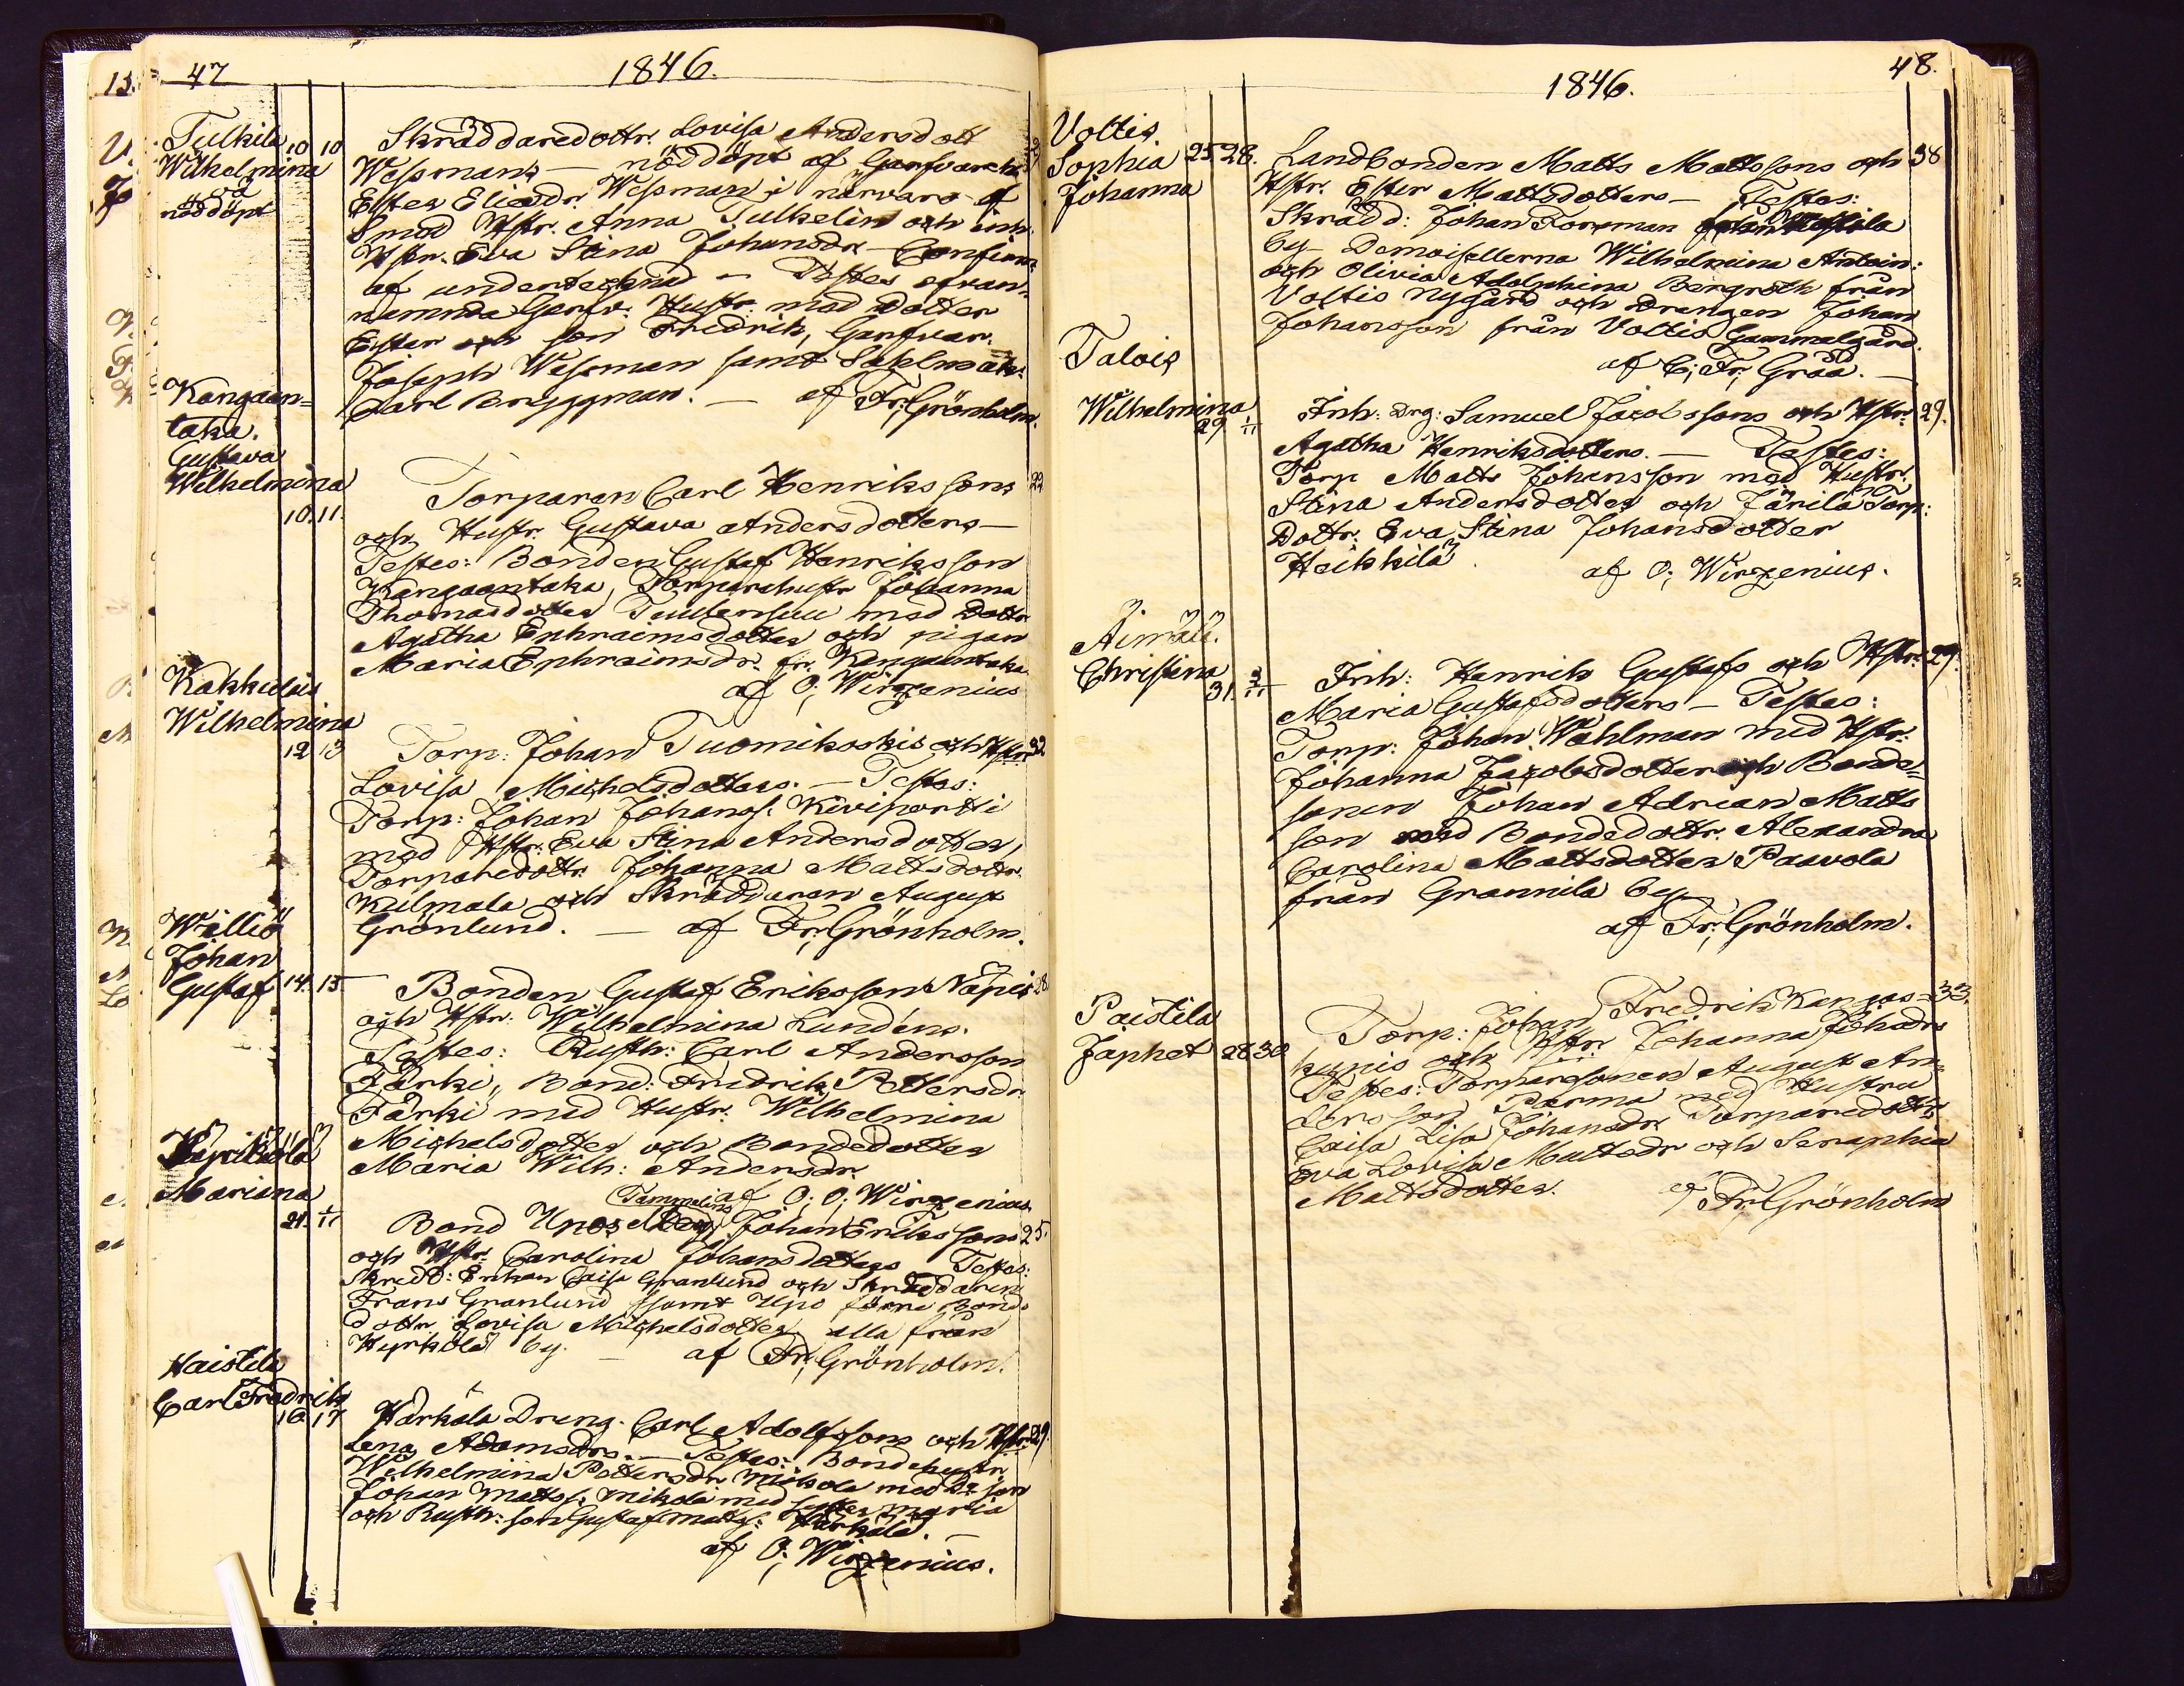 47
1846.
Tulkila 10 10
Wilhelmina
nöddöpt
Skräddaredottr. Lovisa Andersdott
Wessmans — nöddöpt af Garfvareh.
Ester Eliædr. Wessman i närvaro af
Smed Hstr. Anna Tulkelin och inh.
Hstr. Eva Stina Johansdr. — Confirm.
af undertecknad — Testes ofvan-
nämnda Garfv: Hustr. med dotter
Ester och son Fredrik, Garfvar.
Joseph Wessman samt Sadelmak:
Carl Bryggman. — af Fr. Grönholm.
Kangaan-
taka.
Gustava
Wilhelmina
10. 11.
Torparen Carl Henrikssons 22
och Hustr. Gustava Andersdotters —
Testes: Bonden Gustaf Henriksson
Kangaantaka, Torparehustr Johanna
Thomasdotter med Dottr
Agatha Ephraimsdotter och pigan
Maria Ephraimsdr. fr. Kangaantaka
af O; Wirzenius
Kakkulais
Wilhelmina
12 13
Torp: Johan Tuomikoskis och Hstr 32
Lovisa Michelsdotters. — Testes:
Torp: Johan Johanss. Kiviportti
med Hstr. Eva Stina Andersdotter,
Torparedottr. Johanna Mattsdottr.
Kulmala och Skräddaren August
Grönlund. — af Fr. Grönholm.
Williö
Johan
Gustaf 14. 15
Bonden Gustaf Erikssons Näpis 28
och Hstr. Wilhelmina Lundéns.
Testes: Rusth: Carl Andersson
Färki, Bond: Fredrik Pettersdr.
Färki med Hustr. Wilhelmina
Michelsdotter och Bondedotter
Maria Wilh: Andersdr.
af O; O; Wirzenius
Hyrköla
Mariana
21. 1/11
Tammelins
Bond Upos Johan Erikssons 25.
och Hstr. Carolina Johansdotters Testes:
Skredd: Enkan Caisa Granlund och Skräddaren
Frans Granlund samt Upo Bond
dottr Lovisa Michelsdotter alla från
Hyrköla by. — af Fr; Grönholm.
Haistila
Carl Fredrik
16 17
Härkälä Dreng. Carl Adolfssons och Hstr. 29.
Lena Adamsdrs. — Testes: Bondehustr
Wilhelmina Pettersdr Mikola med Dr son
Johan Mattss. Mikola med Syster Maria
och Rusth: son Gustaf Matts: Härkälä. —
af O; Wirzenius.
48.
1846.
Voltis
Sophia 25. 28.
Johanna
Landbonden Matts Mattssons och 38
Hstr. Ester Mattsdotters — Testes:
Skrädd: Johan Forsman
by — Demoisellerna Wilhelmina Antoin:
och Olivia Adolphina Bergroth från
Voltis Nygård och Drengen Johan
Johansson från Voltis Gammelgård.
af C; Fr; Gråå. —
Talois
Wilhelmina
29 1/11
Inh: Drg: Samuel Jacobssons och Hstr. 29.
Agatha Henriksdotters. — Testes:
Torp Matts Johansson med Hustr.
Stina Andersdotter och Järilä Torp:
Dottr. Eva Stina Johansdotter
Heikkilä. af O; Wirzenius.
Äimälä.
Christina
31. 3/11
Inh: Henrik Gustafs och Hstr. 29.
Maria Gustafsdotters — Testes:
Torp: Johan Wahlman med Hstr.
Johanna Jacobsdotter och Bonde-
sonen Johan Adrian Matts
son med Bondedottr. Alexandra
Carolina Mattsdotter Paavola
från Grannila by
af Fr; Grönholm.
Paistila
Japhet 28 30
Torp: Johan Fredrik Kangas- 33.
kunis och Hstr Johanna Johadrs
Testes: Torparesonen August An-
dersson Parma med Hustru
Caisa Lisa Johansdr. Torparedottr
Eva Lovisa Mattsdr och Seraphia
Mattsdotter. af Fr; Grönholm